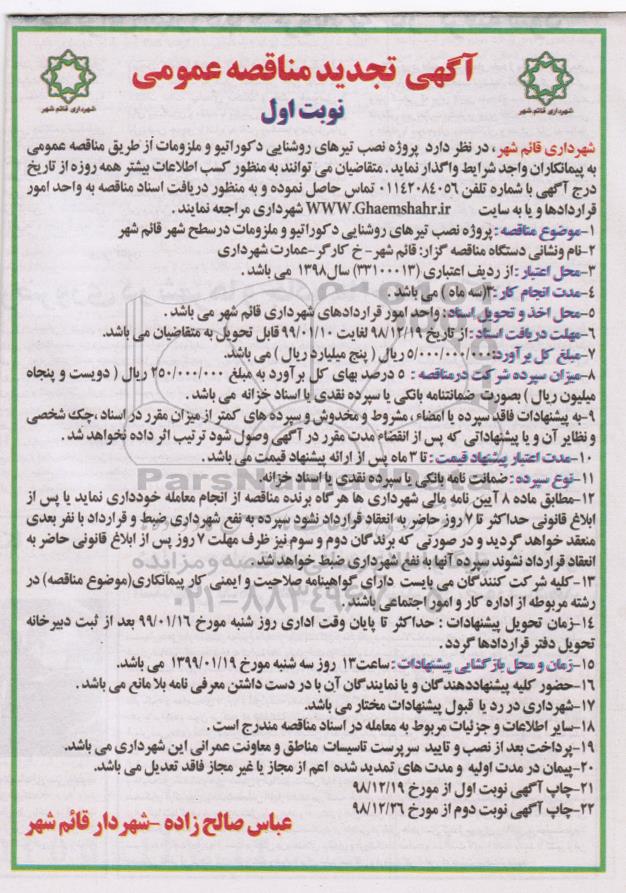 آگهی تجدید مناقصه عمومی
نوبت اول
شهرداری قائم شهر
شهرداری قائم شهر
شهرداری قائم شهر، در نظر دارد پروژه نصب تیرهای روشنایی دکوراتیو و ملزومات از طریق مناقصه عمومی
به پیمانکاران واجد شرایط واگذار نماید. متقاضیان می توانند به منظور کسب اطلاعات بیشتر همه روزه از تاریخ
درج آگهی با شماره تلفن ۰۱۱۴۲۰۸۴۰۵۶ تماس حاصل نموده و به منظور دریافت اسناد مناقصه به واحد امور
قراردادها و یا به سایت WWW.Ghaemshahr.ir شهرداری مراجعه نمایند.
۱-موضوع مناقصه: پروژه نصب تیرهای روشنایی دکوراتیو و ملزومات درسطح شهر قائم شهر
۲-نام ونشانی دستگاه مناقصه گزار: قائم شهر- خ کارگر-عمارت شهرداری
۳-محل اعتبار: از ردیف اعتباری (۳۳۱۰۰۰۱۳) سال۱۳۹۸ می باشد.
۴-مدت انجام کار: (سه ماه) می باشد.
۵-محل اخذ و تحویل اسناد: واحد امور قراردادهای شهرداری قائم شهر می باشد.
۶-مهلت دریافت اسناد: از تاریخ ۹۸/۱۲/۱۹ لغایت ۹۹/۰۱/۱۰ قابل تحویل به متقاضیان می باشد.
۷-مبلغ کل برآورد: ۵/۰۰۰/۰۰۰/۰۰۰ ریال (پنج میلیارد ریال) می باشد.
۸-میزان سپرده شرکت درمناقصه: ۵ درصد بهای کل برآورد به مبلغ ۲۵۰/۰۰۰/۰۰۰ ریال (دویست و پنجاه
میلیون ریال) بصورت ضمانتنامه بانکی یا سپرده نقدی یا اسناد خزانه می باشد.
۹-به پیشنهادات فاقد سپرده یا امضاء، مشروط و مخدوش و سپرده های کمتر از میزان مقرر در اسناد،چک شخصی
و نظایر آن و یا پیشنهاداتی که پس از انقضاء مدت مقرر در آگهی وصول شود ترتیب اثر داده نخواهد شد.
۱۰-مدت اعتبار پیشنهاد قیمت: تا ۳ ماه پس از ارائه پیشنهاد قیمت می باشد.
۱۱-نوع سپرده: ضمانت نامه بانکی یا سپرده نقدی یا اسناد خزانه.
۱۲-مطابق ماده ۸ آیین نامه مالی شهرداری ها هرگاه برنده مناقصه از انجام معامله خودداری نماید یا پس از
ابلاغ قانونی حداکثر تا ۷ روز حاضر به انعقاد قرارداد نشود سپرده به نفع شهرداری ضبط و قرارداد با نفر بعدی
منعقد خواهد گردید و در صورتی که برندگان دوم و سوم نیز ظرف مهلت ۷ روز پس از ابلاغ قانونی حاضر به
انعقاد قرارداد نشوند سپرده آنها به نفع شهرداری ضبط خواهد شد.
۱۳-کلیه شرکت کنندگان می بایست دارای گواهینامه صلاحیت و ایمنی کار پیمانکاری(موضوع مناقصه) در
رشته مربوطه از اداره کار و امور اجتماعی باشند.
۱۴-زمان تحویل پیشنهادات: حداکثر تا پایان وقت اداری روز شنبه مورخ ۹۹/۰۱/۱۶ بعد از ثبت دبیرخانه
تحویل دفتر قراردادها گردد.
۱۵-زمان و محل بازگشایی پیشنهادات: ساعت۱۳ روز سه شنبه مورخ ۱۳۹۹/۰۱/۱۹ می باشد.
۱۶-حضور کلیه پیشنهاددهندگان و یا نمایندگان آن با در دست داشتن معرفی نامه بلا مانع می باشد.
۱۷-شهرداری در رد یا قبول پیشنهادات مختار می باشد.
۱۸-سایر اطلاعات و جزئیات مربوط به معامله در اسناد مناقصه مندرج است.
۱۹-پرداخت بعد از نصب و تایید سرپرست تاسیسات مناطق و معاونت عمرانی این شهرداری می باشد.
۲۰-پیمان در مدت اولیه و مدت های تمدید شده اعم از مجاز یا غیر مجاز فاقد تعدیل می باشد.
۲۱-چاپ آگهی نوبت اول از مورخ ۹۸/۱۲/۱۹
۲۲-چاپ آگهی نوبت دوم از مورخ ۹۸/۱۲/۲۶
عباس صالح زاده -شهردار قائم شهر